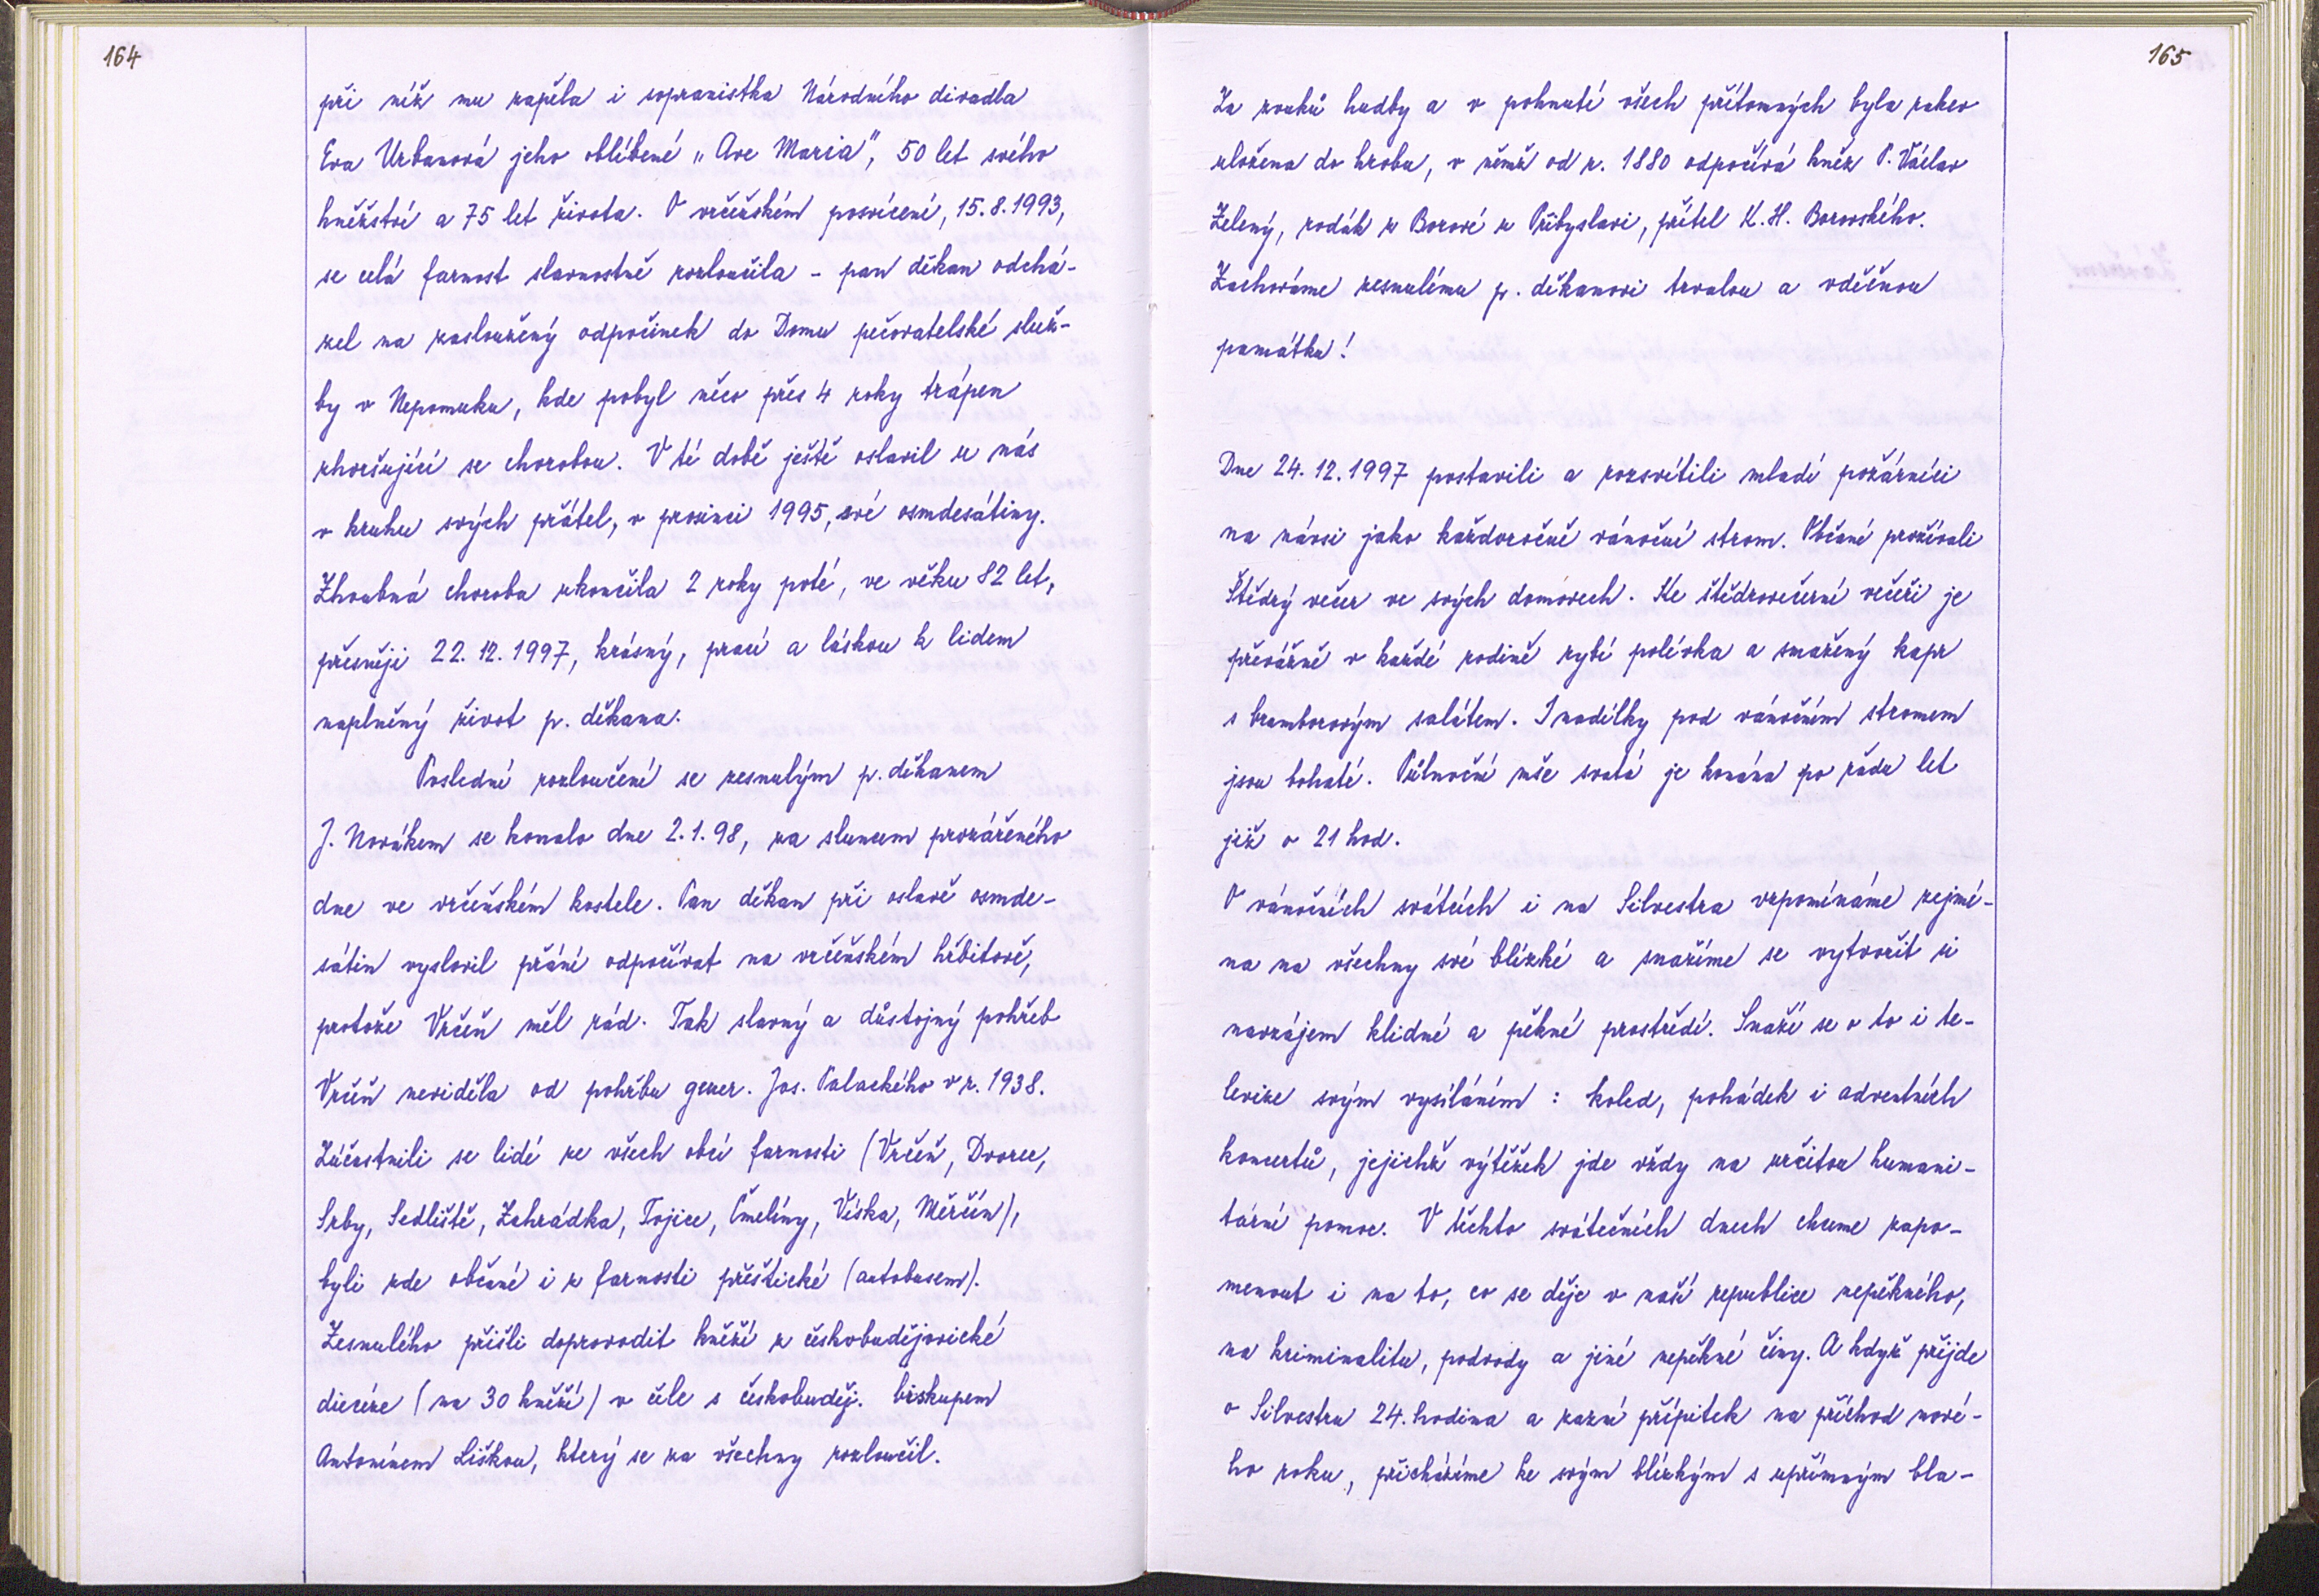 164
při níž mu zapěla i sopranistka Národního divadla
Eva Urbanová jeho oblíbené „Ave Maria", 50 let svého
kněžství a 75 let života. O vrčeňském posvícení, 15.8.1993,
se celá farnost slavnostně rozloučila - pan děkan odchá-
zel na zasloužený odpočinek do Domu pečovatelské služ-
by v Nepomuku, kde pobyl něco přes 4 roky trápen
zhoršující se chorobou. V té době ještě oslavil u nás
v kruhu svých přátel, v prosinci 1995, své osmdesátiny.
Zhoubná choroba ukončila 2 roky poté, ve věku 82 let,
přesněji 22.12.1997, krásný, prací a láskou k lidem
naplněný život p. děkana.
Poslední rozloučení se zesnulým p. děkanem
J. Novákem se konalo dne 2.1.98, za sluncem prozářeného
dne ve vrčeňském kostele. Pan děkan při oslavě osmde-
sátin vyslovil přání odpočívat na vrčeňském hřbitově,
protože Vrčeň měl rád. Tak slavný a důstojný pohřeb
Vrčeň neviděla od pohřbu gener. Jos. Palackého v r. 1938.
Zúčastnili se lidé ze všech obcí farnosti (Vrčeň, Dvorec,
Srby, Sedliště, Zahrádka, Tojice, Čmelíny, Víska, Měrčín),
byli zde občané i z farnosti přeštické (autobusem).
Zesnulého přišli doprovodit kněží z českobudějovické
diecéze (na 30 kněží) v čele s českobuděj. biskupem
Antonínem Liškou, který se za všechny rozloučil.
165
Za zvuků hudby a v pohnutí všech přítomných byla rakev
uložena do hrobu, v němž od r. 1880 odpočívá kněz P. Václav
Zelený, rodák z Borové u Přibyslavi, přítel K. H. Borovského.
Zachováme zesnulému p. děkanovi trvalou a vděčnou
památku!
Dne 24.12.1997 postavili a rozsvítili mladí požárníci
na návsi jako každoročně vánoční strom. Občané prožívali
Štědrý večer ve svých domovech. Ke štědrovečerní večeři je
převážně v každé rodině rybí polévka a smažený kapr
s bramborovým salátem. I nadílky pod vánočním stromem
jsou bohaté. Půlnoční mše svatá je konána po řadu let
již v 21 hod.
O vánočních svátcích i na Silvestra vzpomínáme zejmé-
na na všechny své blízké a snažíme se vytvořit si
navzájem klidné a pěkné prostředí. Snaží se o to i te-
levize svým vysíláním : koled, pohádek i adventních
koncertů, jejichž výtěžek jde vždy na určitou humani-
tární pomoc. V těchto svátečních dnech chceme zapo-
menout i na to, co se děje v naší republice nepěkného,
na kriminalitu, podvody a jiné nepěkné činy. A když přijde
o Silvestru 24. hodina a zazní přípitek na příchod nové-
ho roku, přicházíme ke svým blízkým s upřímným bla-